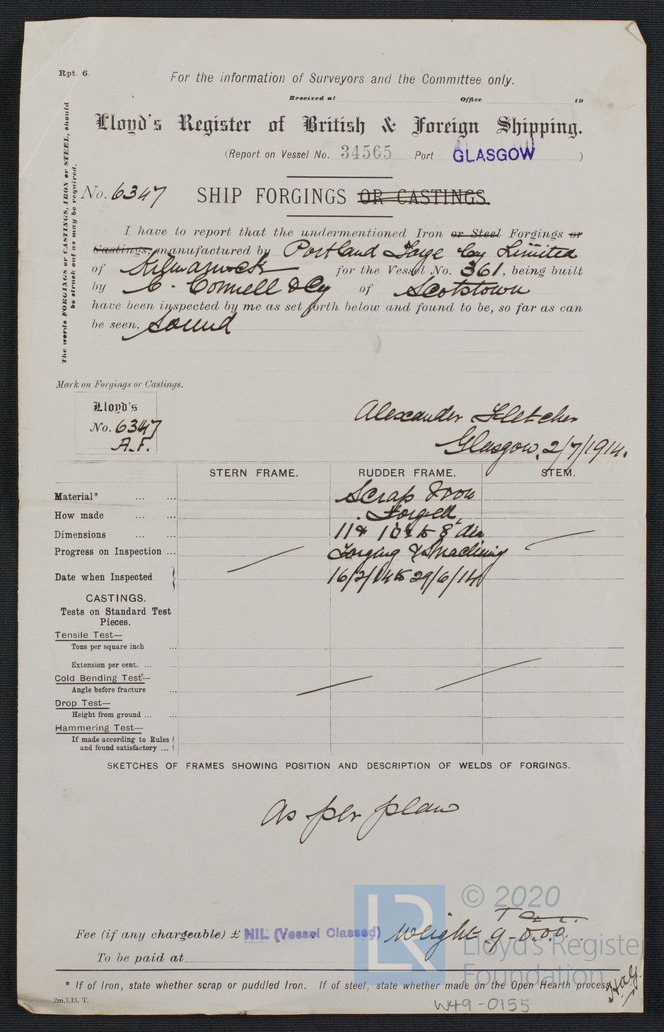 Rpt. 6.
For the information of Surveyors and the Committee only.
Received at Office 19
Lloyd's Register of British & Foreign Shipping.
(Report on Vessel No. 34565 Port GLASGOW )
No. 6347 SHIP FORGINGS OR CASTINGS.
The words FORGINGS or CASTINGS, IRON or STEEL, should
be struck out as may be required.
I have to report that the undermentioned Iron or Steel Forgings or
Castings, manufactured by Portland Forge Coy Limited
of Kilmarnock for the Vessel No. 361, being built
by C. Connell & Cy of Scotstown
have been inspected by me as set forth below and found to be, so far as can
be seen, Sound
Mark on Forgings or Castings.
Lloyd's
No. 6347
A.F.
Alexander Fletcher
Glasgow, 2/7/1914.
STERN FRAME. RUDDER FRAME. STEM.
Material* ... ... Scrap Iron
How made ... ... Forged
Dimensions ... ... 11 & 10 to 8" dia
Progress on Inspection ... Forging & Machining
Date when Inspected 16/2/14 to 29/6/14
CASTINGS.
Tests on Standard Test
Pieces.
Tensile Test—
Tons per square inch
Extension per cent. ... ...
Cold Bending Test—
Angle before fracture ...
Drop Test—
Height from ground ... ...
Hammering Test—
If made according to Rules
and found satisfactory ...
SKETCHES OF FRAMES SHOWING POSITION AND DESCRIPTION OF WELDS OF FORGINGS.
As per plan
© 2020
LR
Lloyd's Register
Foundation
Fee (if any chargeable) £ NIL (Vessel Classed) Weight 9-0.0.0.
To be paid at
* If of Iron, state whether scrap or puddled Iron. If of steel, state whether made on the Open Hearth process.
2m,1,13. T.
W49-0155